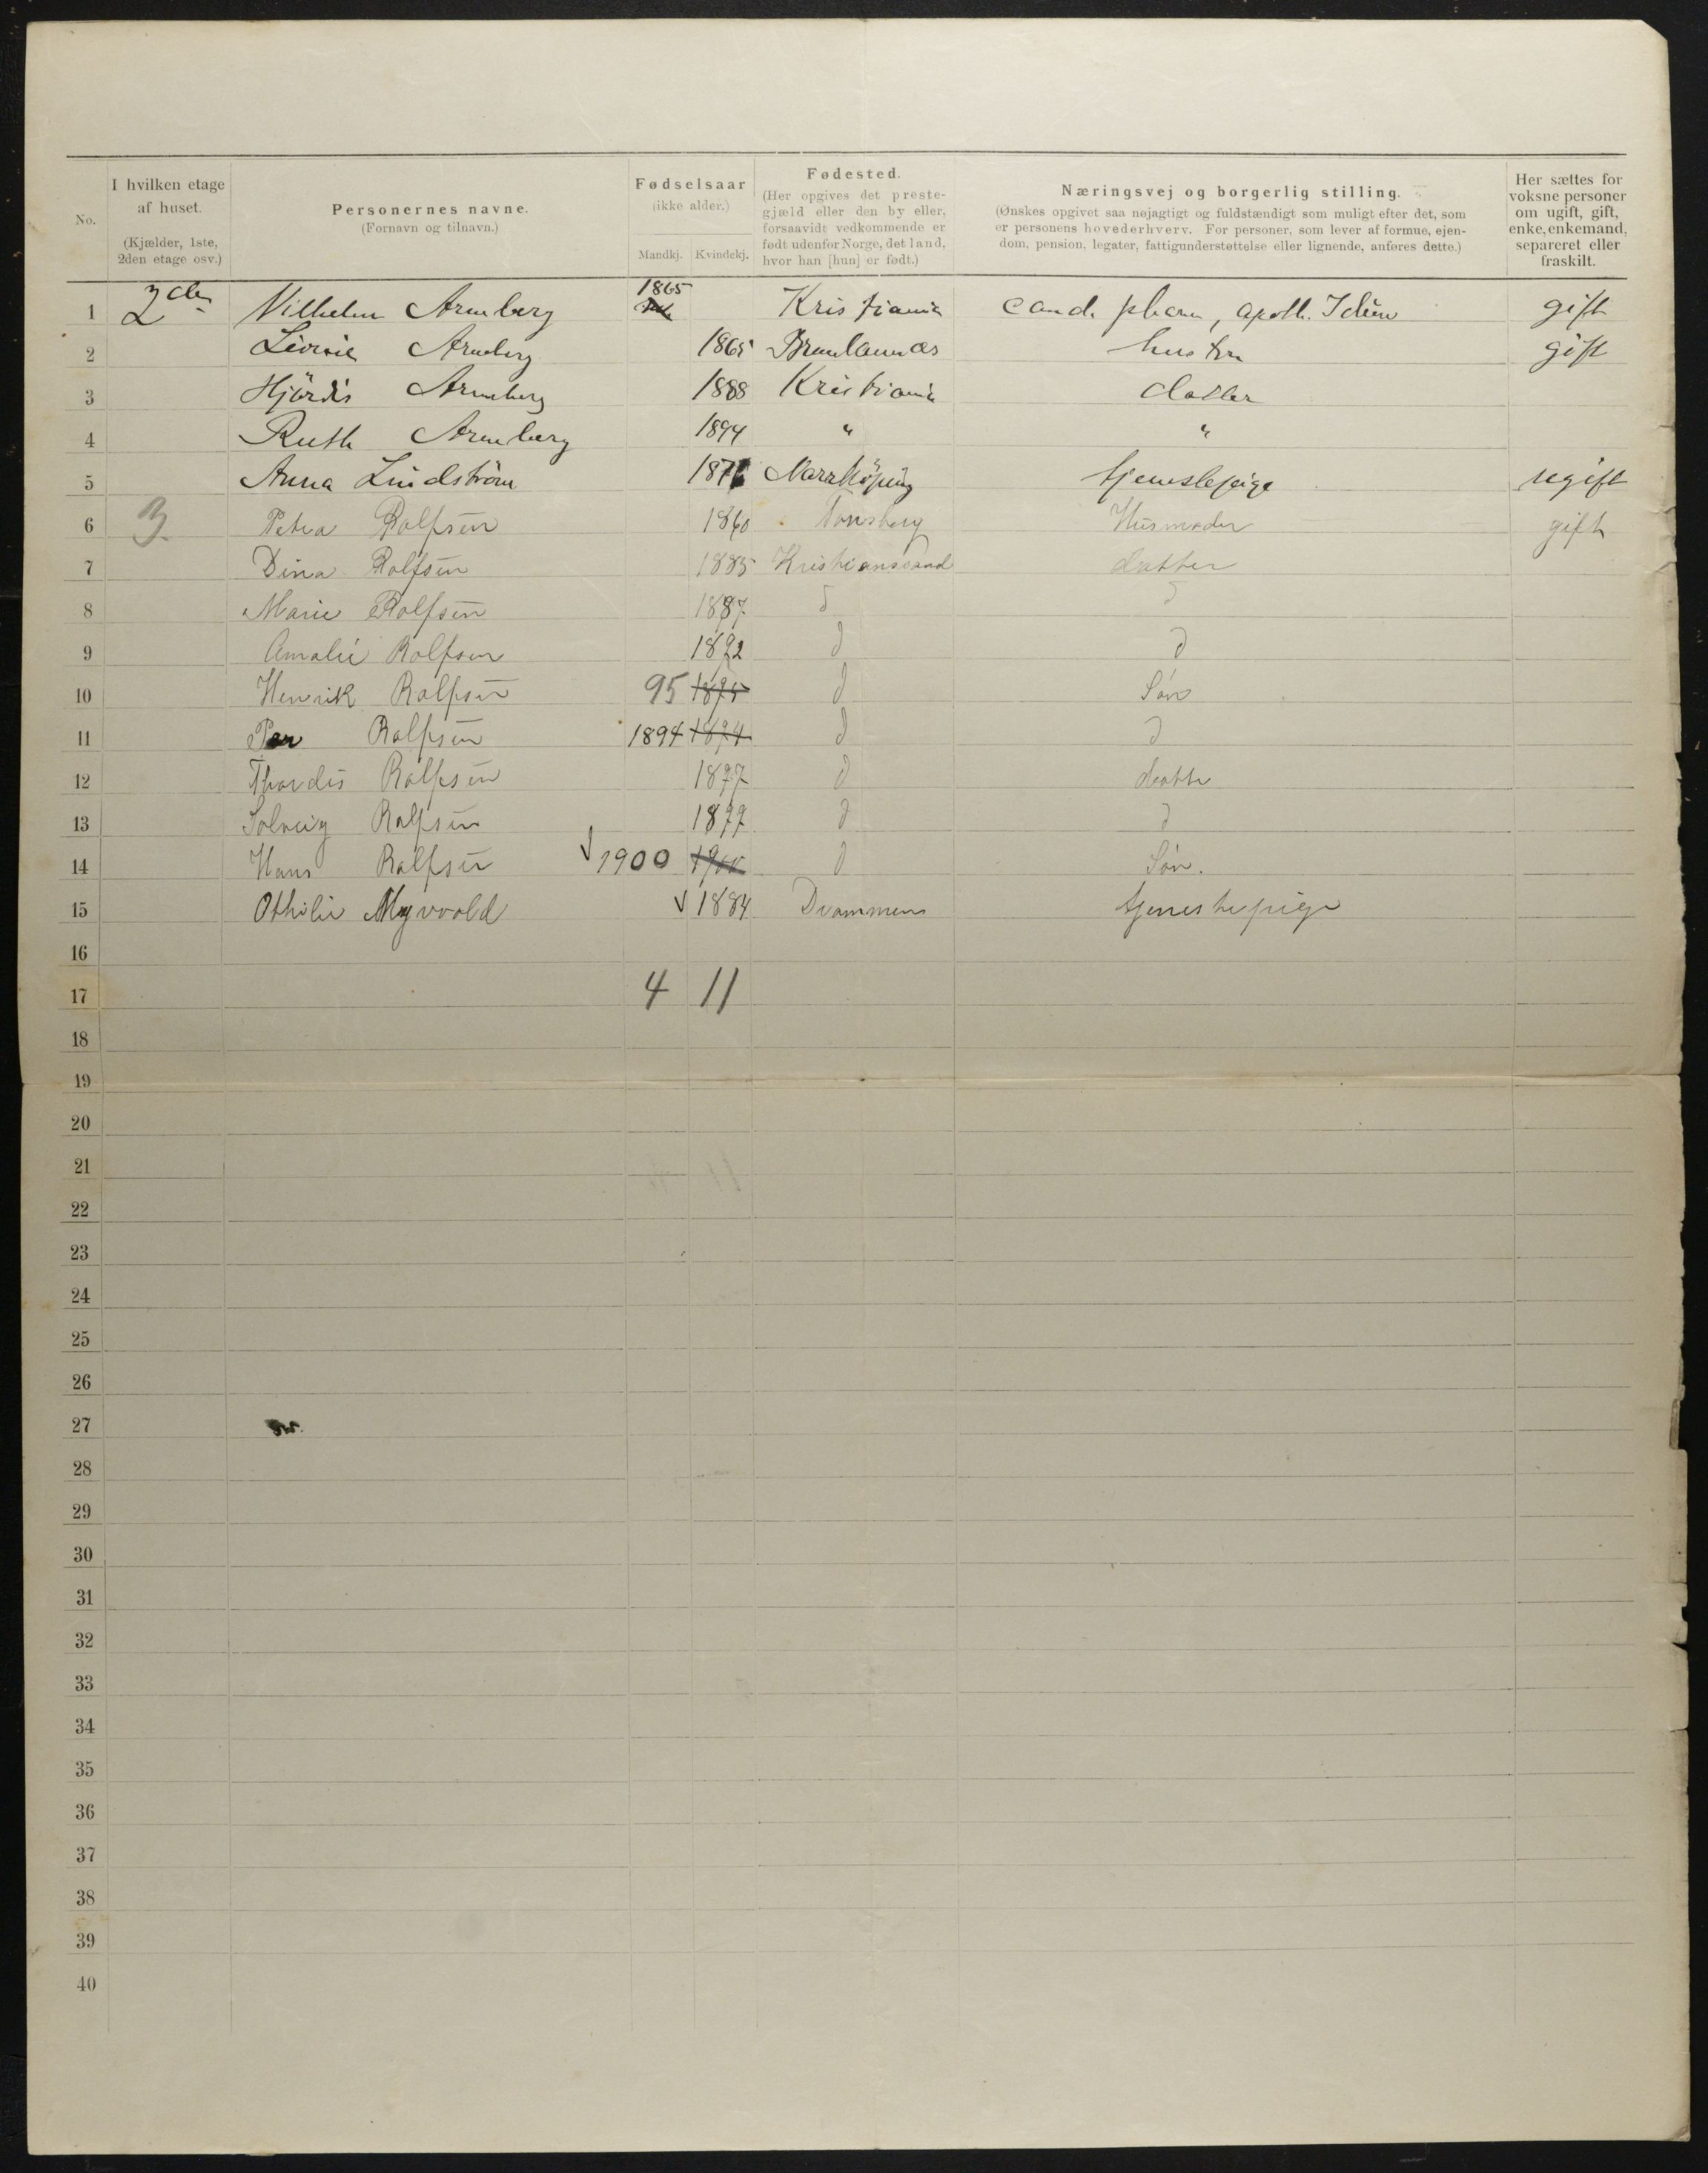 No.
I hvilken etage af huset. (Kjælder, 1ste, 2den etage osv.)
Personernes navne. (Fornavn og tilnavn.)
Fødselsaar (ikke alder.) Mandkj. Kvindekj.
Fødested. (Her opgives det prestegjæld eller den by eller, forsaavidt vedkommende er født udenfor Norge, det land, hvor han [hun] er født.)
Næringsvej og borgerlig stilling. (Ønskes opgivet saa nøjagtigt og fuldstændigt som muligt efter det, som er personens hovederhverv. For personer, som lever af formue, ejendom, pension, legater, fattigunderstøttelse eller lignende, anføres dette.)
Her sættes for voksne personer om ugift, gift, enke, enkemand, separeret eller fraskilt.
1 2den Vilhelm Armberg 1865 Kristiania cand. pharm, apoth. gift
2 Armberg 1865 Brunlanæs hustru gift
3 Hjördis Armberg 1888 Kristiania datter
4 Ruth Armberg 1894 " "
5 Anna Lindström 187 Norrköping tjenestepige ugift
6 3 Petra Rolfsen 1860 Tønsberg Husmoder gift
7 Dina Rolfsen 1885 Kristianssand datter
8 Marie Rolfsen 1887 d d
9 Amalie Rolfsen 1892 d d
10 Henrik Rolfsen 95 1895 d Søn
11 Per Rolfsen 1894 1894 d d
12 Thordis Rolfsen 1897 d datter
13 Solveig Rolfsen 1899 d d
14 Hans Rolfsen 1900 1900 d Søn.
15 Othilie Myrvold 1884 Drammens tjenestepige
16
17 4 11
18
19
20
21
22
23
24
25
26
27
28
29
30
31
32
33
34
35
36
37
38
39
40